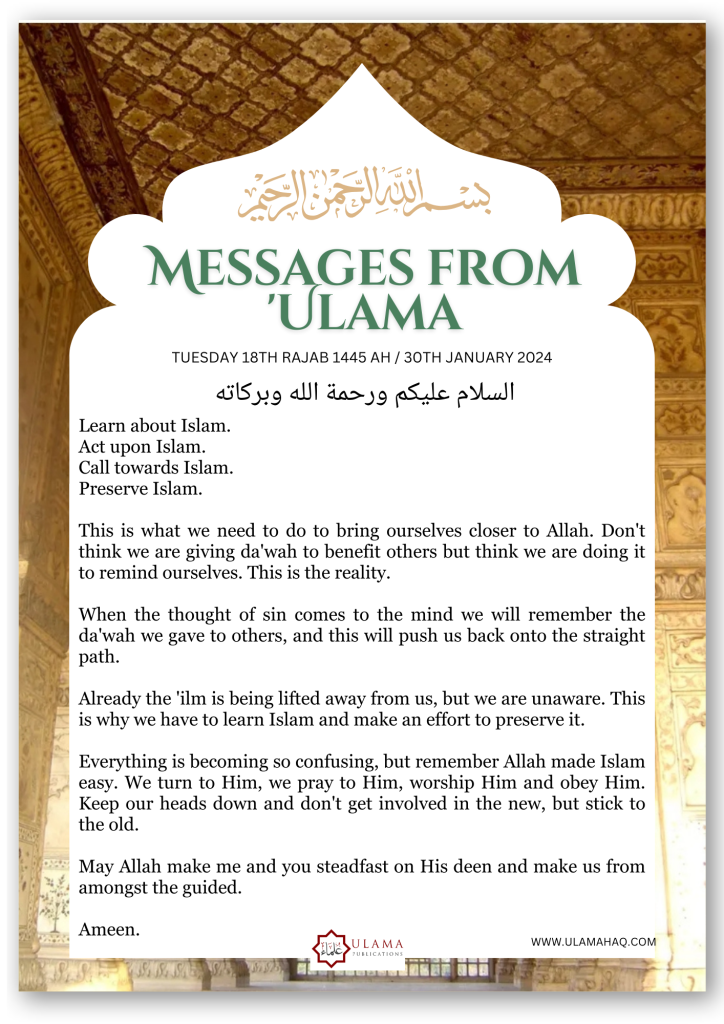 بسم الله الرحمن الرحيم
MESSAGES FROM
'ULAMA
TUESDAY 18TH RAJAB 1445 AH / 30TH JANUARY 2024
السلام عليكم ورحمة الله وبركاته
Learn about Islam.
Act upon Islam.
Call towards Islam.
Preserve Islam.
This is what we need to do to bring ourselves closer to Allah. Don't
think we are giving da'wah to benefit others but think we are doing it
to remind ourselves. This is the reality.
When the thought of sin comes to the mind we will remember the
da'wah we gave to others, and this will push us back onto the straight
path.
Already the 'ilm is being lifted away from us, but we are unaware. This
is why we have to learn Islam and make an effort to preserve it.
Everything is becoming so confusing, but remember Allah made Islam
easy. We turn to Him, we pray to Him, worship Him and obey Him.
Keep our heads down and don't get involved in the new, but stick to
the old.
May Allah make me and you steadfast on His deen and make us from
amongst the guided.
Ameen.
ULAMA
PUBLICATIONS
WWW.ULAMAHAQ.COM